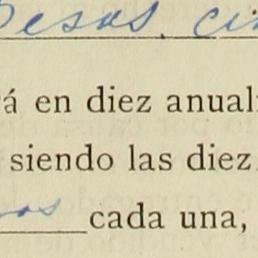 Pesos, cin
rá en diez anuali
siendo las diez
os cada una,